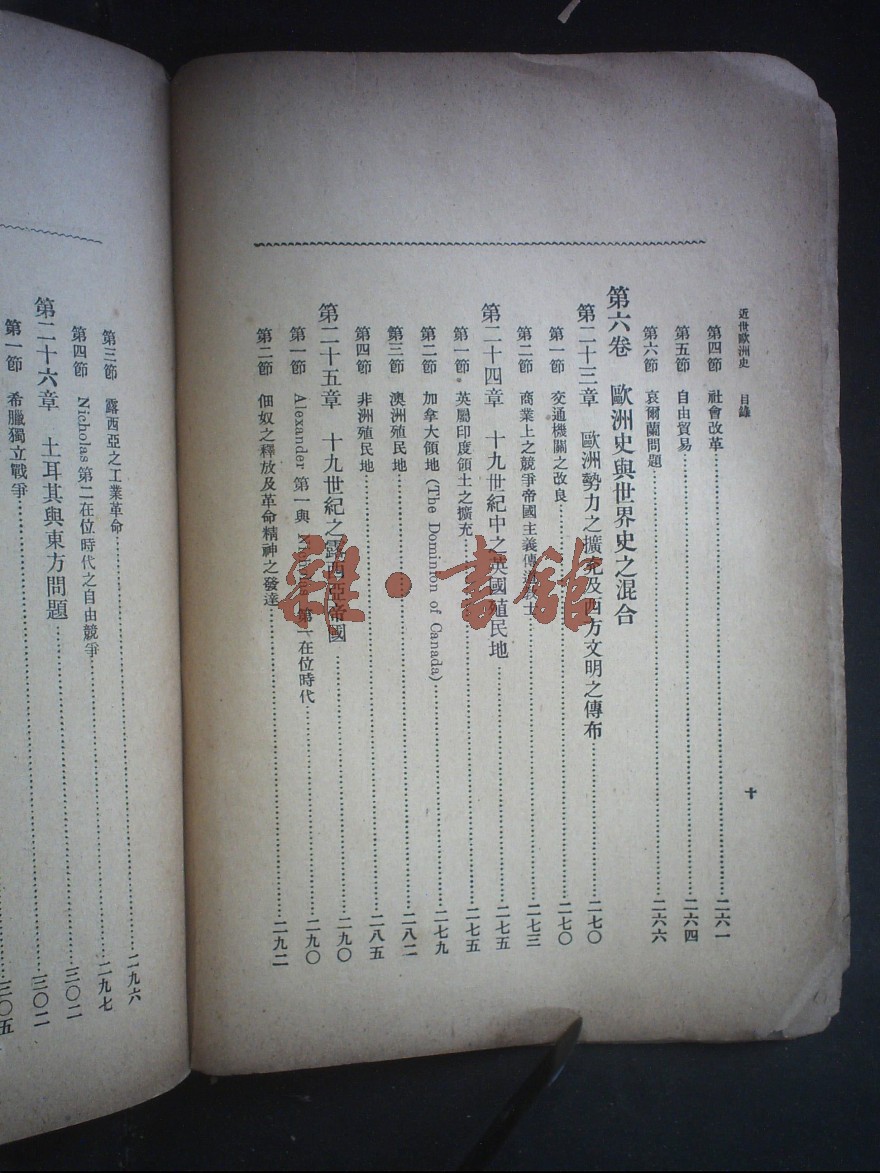 近世歐洲史 目錄 十
第四節 社會改革……二六一
第五節 自由貿易……二六四
第六節 哀爾蘭問題……二六六
第六卷 歐洲史與世界史之混合
第二十三章 歐洲勢力之擴充及西方文明之傳布……二七〇
第一節 交通機關之改良……二七〇
第二節 商業上之競爭帝國主義傳道教士……二七三
第二十四章 十九世紀中之英國殖民地……二七五
第一節 英屬印度領土之擴充……二七五
第二節 加拿大領地 (The Dominion of Canada)……二七九
第三節 澳洲殖民地……二八二
第四節 非洲殖民地……二八五
第二十五章 十九世紀之露西亞帝國……二九〇
第一節 Alexander 第一與 Nicholas 第一在位時代……二九〇
第二節 佃奴之釋放及革命精神之發達……二九二
第三節 露西亞之工業革命……二九六
第四節 Nicholas 第二在位時代之自由競爭……二九七
第二十六章 土耳其與東方問題……三〇二
第一節 希臘獨立戰爭……三〇二
三〇五
雜·書館